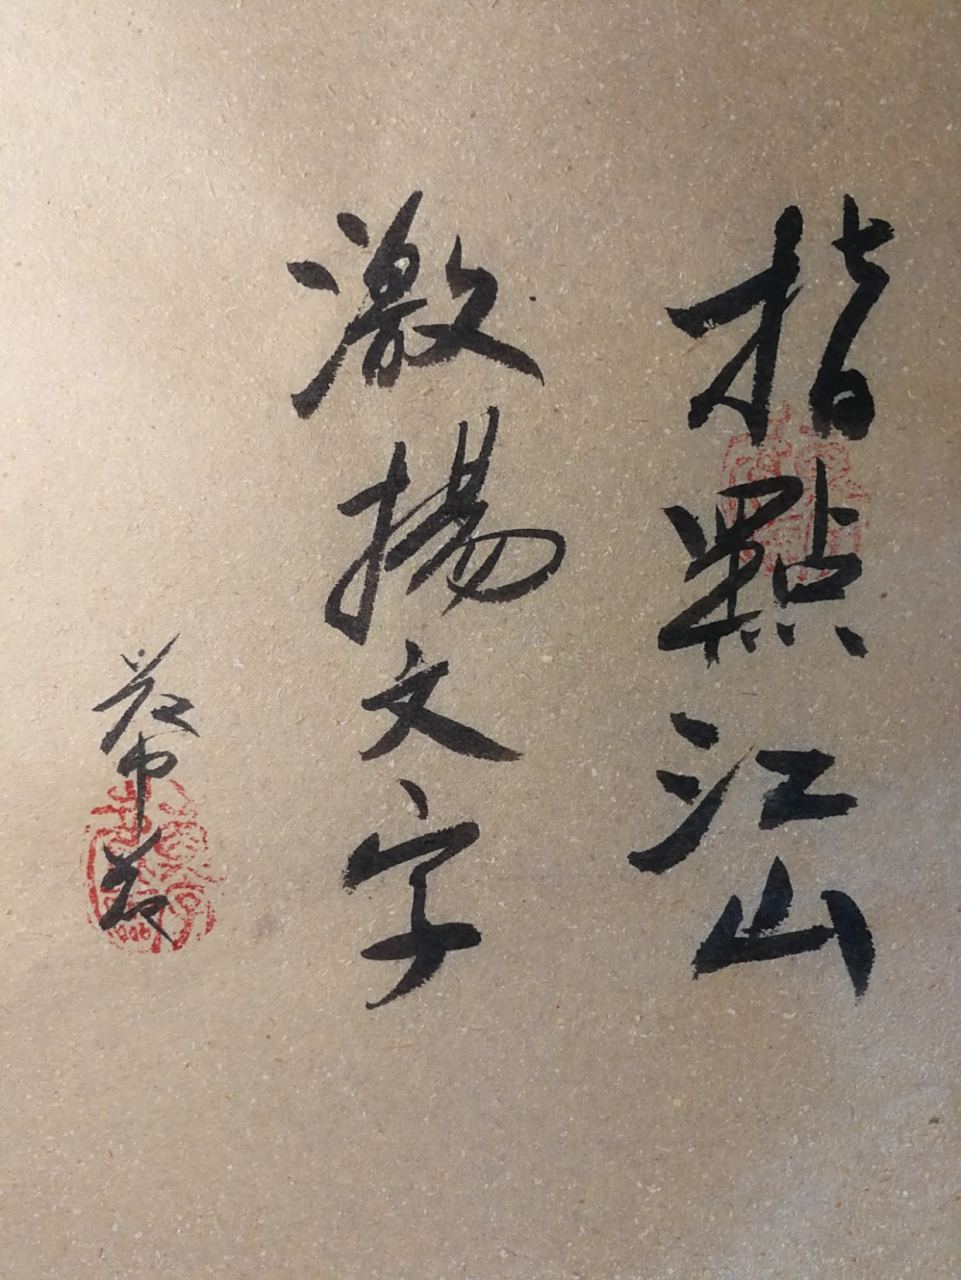 指點江山
激揚文字